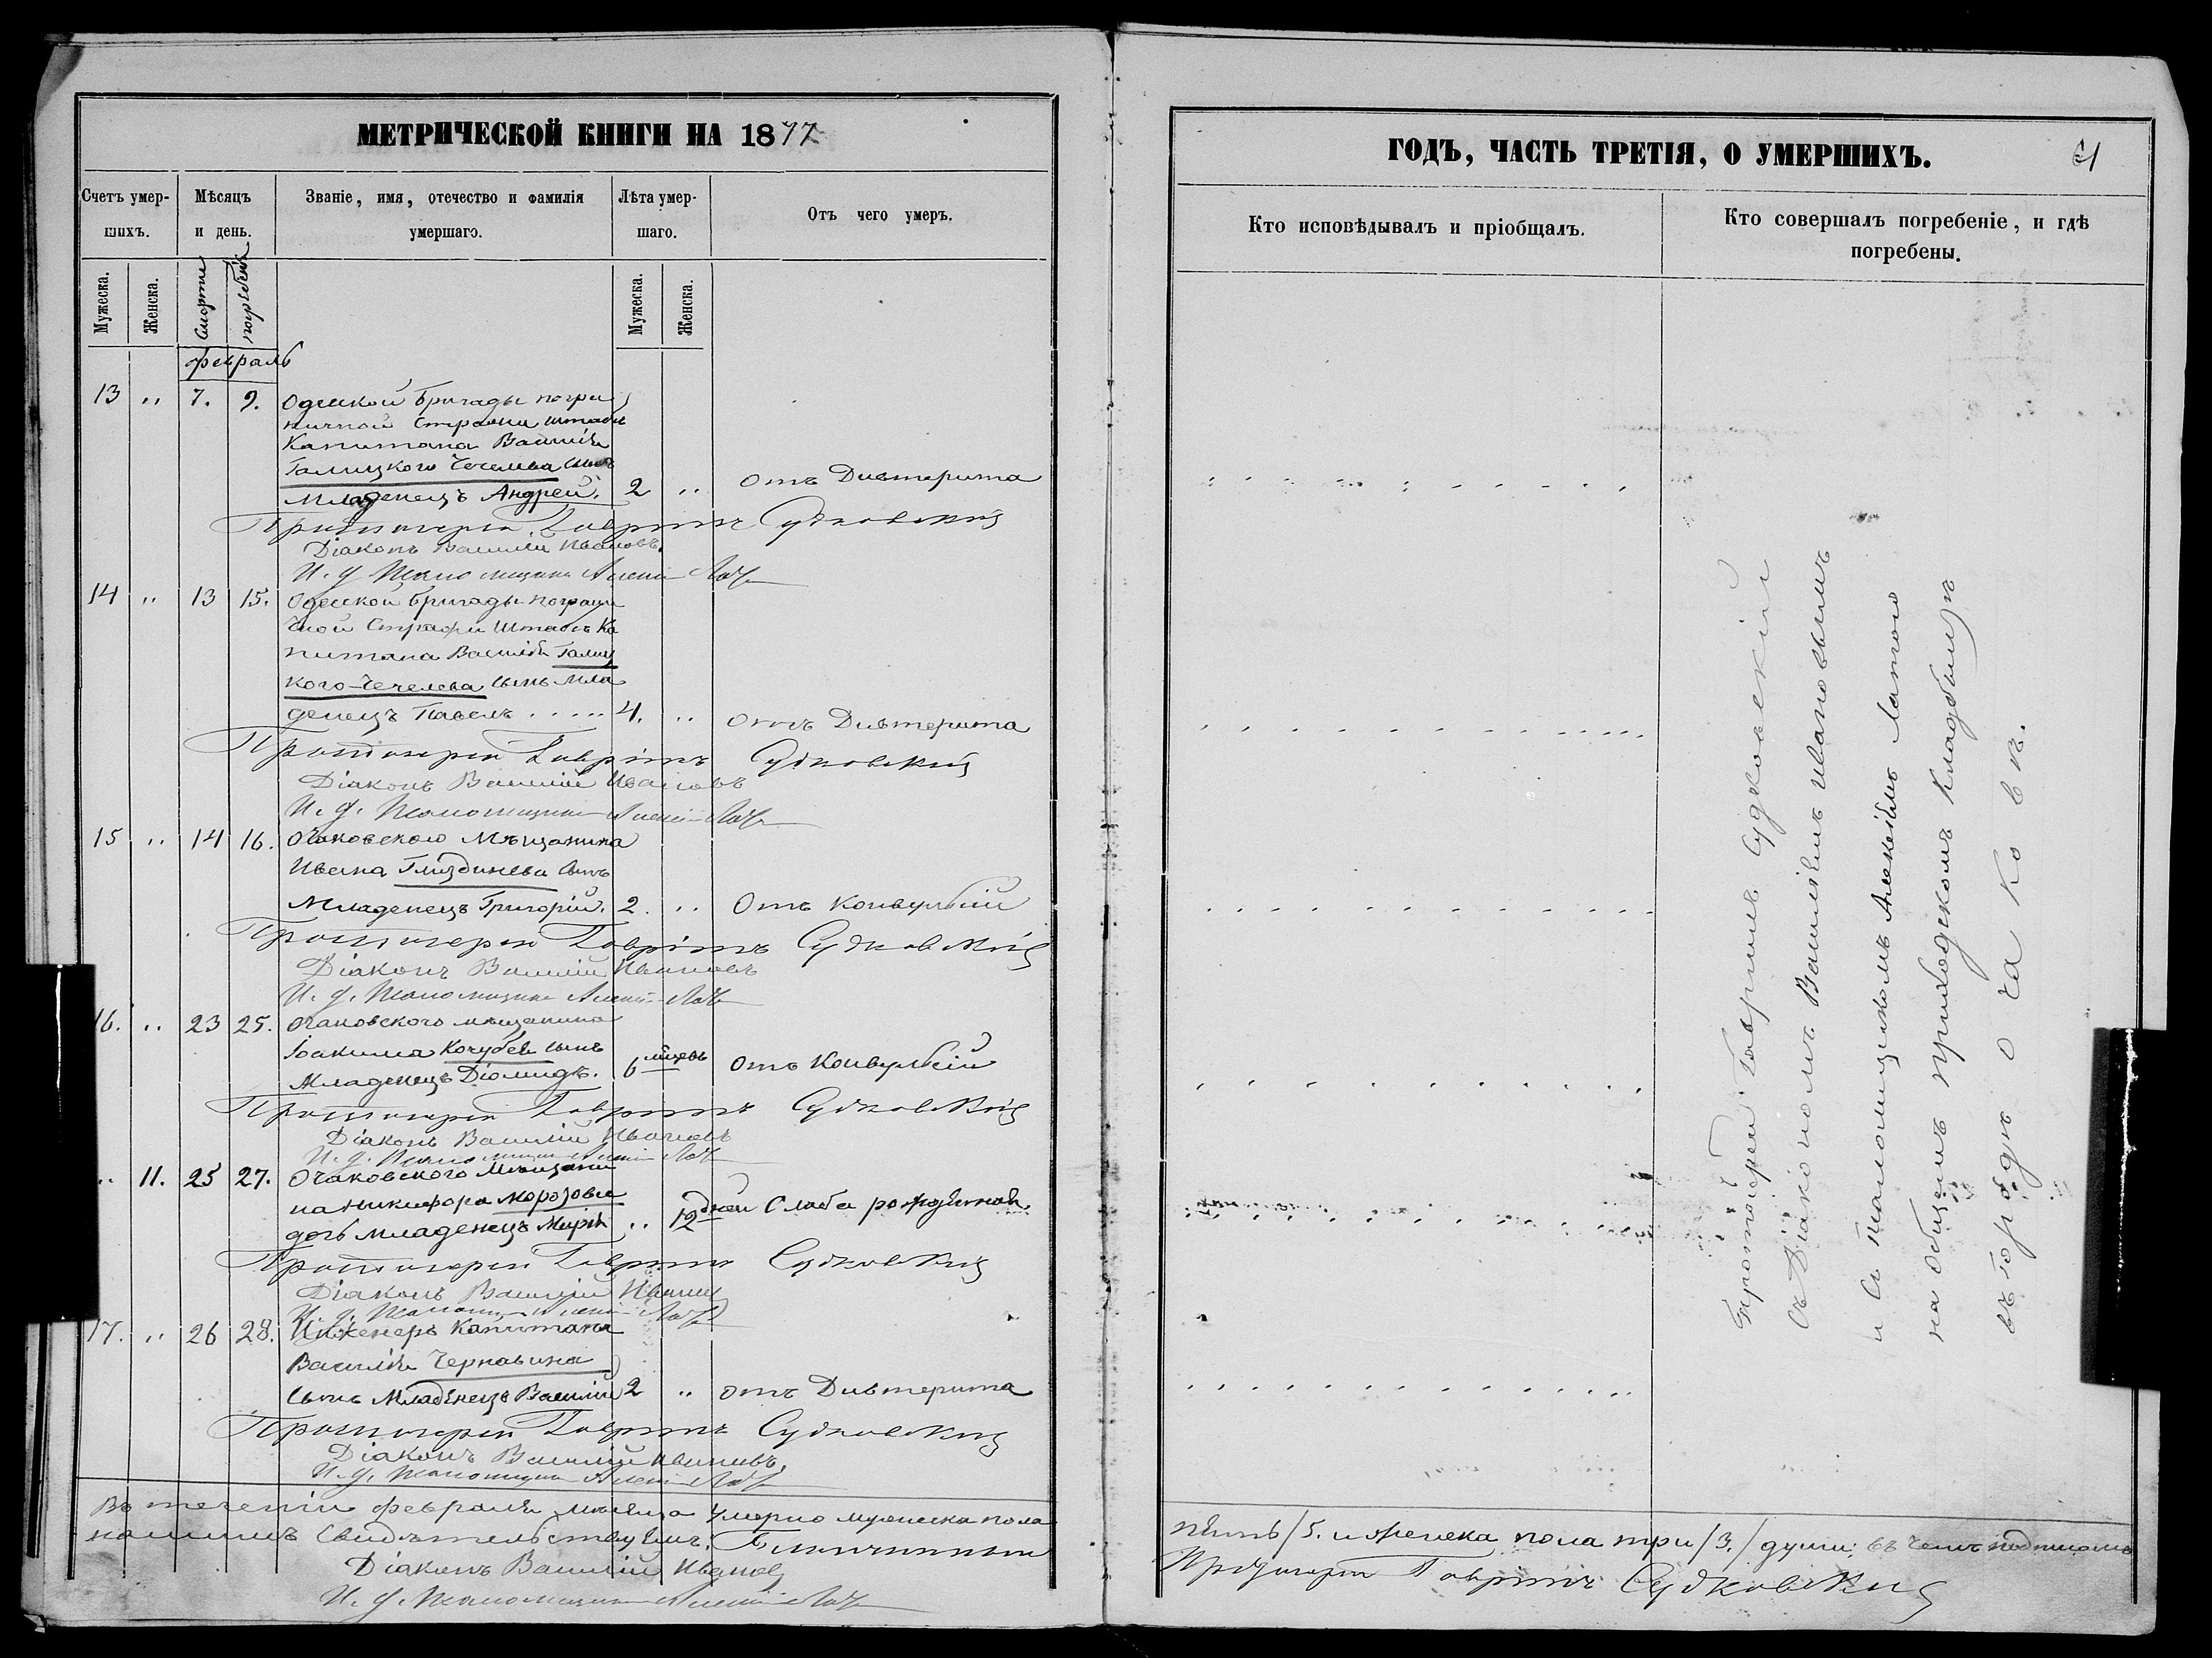 МЕТРИЧЕСКОЙ КНИГИ НА 1877
Счетъ умер-
шихъ.
Мѣсяцъ
и день.
Званіе, имя, отечество и фамилія
умершаго.
Лѣта умер-
шаго.
Отъ чего умеръ.
Мужеска.
Женска.
Смерти
погребенія
Мужеска.
Женска.
февраль
13 " 7. 9. Одесской бригады погра
ничной Стражи штабсъ
Капитана Василія
Галицкого Чечелева сынъ
Младенецъ Андрей. 2 " отъ Дивтерита
Протоіерей Гавріилъ Судковскій
Діаконъ Василій Ивановъ.
И. д. Псаломщика Алексій
14 " 13 15. Одесской бригады пограни
чной Стражи Штабсъ Ка
питана Василія Галиц
кого-Чечелева сынъ мла
денецъ Павелъ ..... 4. " отъ Дивтерита
Протоіерей Гавріилъ Судковскій
Діаконъ Василій Ивановъ
И. д. Псаломщика Алексій
15 " 14 16. Очаковского Мѣщанина
Ивана сынъ
Младенецъ Григорій. 2. " Отъ конвульсій
Протоіерей Гавріилъ Судковскій
Діаконъ Василій Ивановъ
И. д. Псаломщика Алексій
16. " 23 25. Очаковского мѣщанина
Іоакима Кочубея сынъ
Младенецъ Діомидъ. 6 мѣсяц отъ Конвульсій
Протоіерей Гавріилъ Судковскій
Діаконъ Василій Ивановъ
И. д. Псаломщика Алексій
" 11. 25 27. Очаковского Мѣщани
на Никифора Морозова
дочь младенецъ Марія " 12 дней Слаба рожденной
Протоіерей Гавріилъ Судковскій
Діаконъ Василій Ивановъ
И. д. Псаломщика Алексій
17. " 26 28. Инженеръ Капитана
Василія Чернавина
сынъ Младенецъ Василій 2 " отъ Дивтерита
Протоіерей Гавріилъ Судковскій
Діаконъ Василій Ивановъ.
И. д. Псаломщика Алексій
Въ теченіи февраля мѣсяца Умерло мужеска пола
свидѣтельствуемъ:
Діаконъ Василій Ивановъ
И. д. Псаломщика Алексій
ГОДЪ, ЧАСТЬ ТРЕТІЯ, О УМЕРШИХЪ.
Кто исповѣдывалъ и пріобщалъ.
Кто совершалъ погребеніе, и гдѣ
погребены.
Протоіерей Гавріилъ Судковскій
съ Діакономъ Василіемъ Ивановымъ
и съ псаломщикомъ Алексѣемъ
на общемъ приходскомъ кладбищѣ
въ городѣ Очаковѣ.
пять /5. и женска пола три /3./ души; въ чемъ подписомъ
Протоіерей Гавріилъ Судковскій